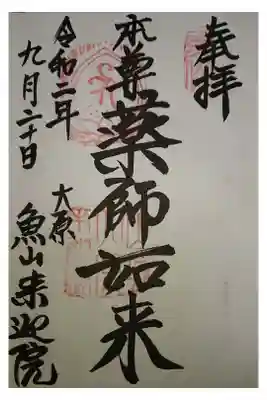 奉拝
本尊薬師如来
大原
魚山来迎院
令和二年
九月二十日